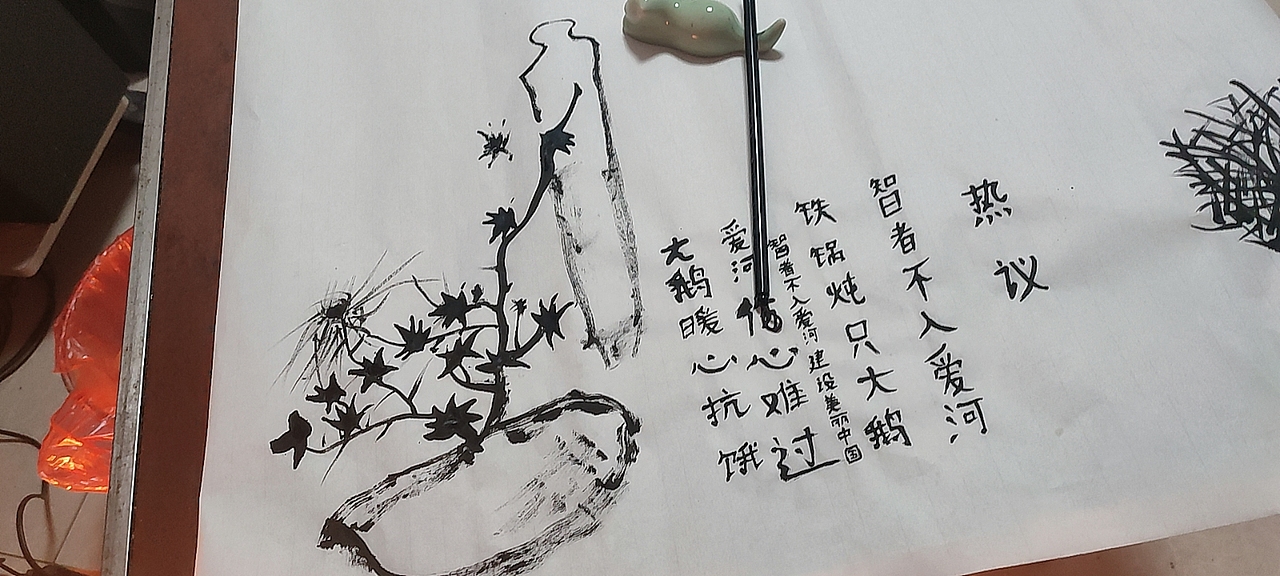 热议
智者不入爱河
铁锅炖只大鹅
智者不入爱河建设美丽中国
爱河伤心难过
大鹅暖心抗饿